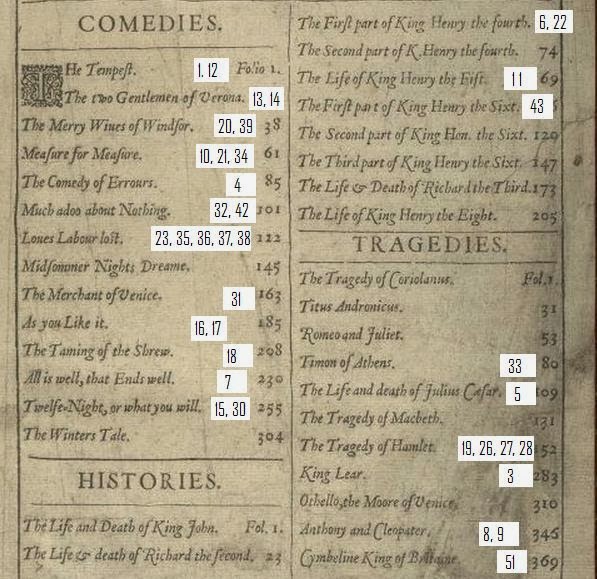 COMEDIES.
The Tempest. 1. 12 Folio 1.
The two Gentlemen of Verona. 13, 14
The Merry Wiues of Windsor. 20, 39 38
Measure for Measure. 10, 21, 34 61
The Comedy of Errours. 4 85
Much adoo about Nothing. 32, 42 101
Loues Labour lost. 23, 35, 36, 37, 38 122
Midsommer Nights Dreame. 145
The Merchant of Venice. 31 163
As you Like it. 16, 17 185
The Taming of the Shrew. 18 208
All is well, that Ends well. 7 230
Twelfe-Night, or what you will. 15, 30 255
The Winters Tale. 304
HISTORIES.
The Life and Death of King John. Fol. 1.
The Life & death of Richard the second. 23
The First part of King Henry the fourth. 6, 22
The Second part of K. Henry the fourth. 74
The Life of King Henry the Fift. 11 69
The First part of King Henry the Sixt. 43
The Second part of King Hen. the Sixt. 120
The Third part of King Henry the Sixt. 147
The Life & Death of Richard the Third. 173
The Life of King Henry the Eight. 205
TRAGEDIES.
The Tragedy of Coriolanus. Fol. 1.
Titus Andronicus. 31
Romeo and Juliet. 53
Timon of Athens. 33 80
The Life and death of Julius Cæsar. 5 109
The Tragedy of Macbeth. 131
The Tragedy of Hamlet. 19, 26, 27, 28 152
King Lear. 3 283
Othello, the Moore of Venice. 310
Anthony and Cleopater. 8, 9 346
Cymbeline King of Britaine. 51 369